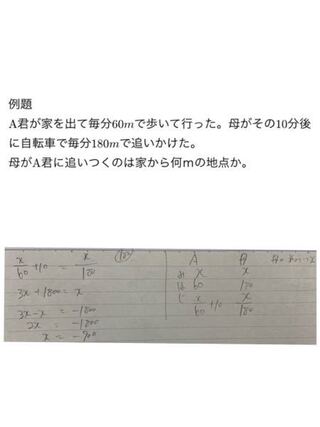 例題
A君が家を出て毎分60mで歩いて行った。母がその10分後
に自転車で毎分180mで追いかけた。
母がA君に追いつくのは家から何mの地点か。
x/60 +10 = x/180
3x + 1800 = x
3x - x = -1800
2x = -1800
x = -900
A 母
み x x
は 60 180
じ x/60 +10 x/180